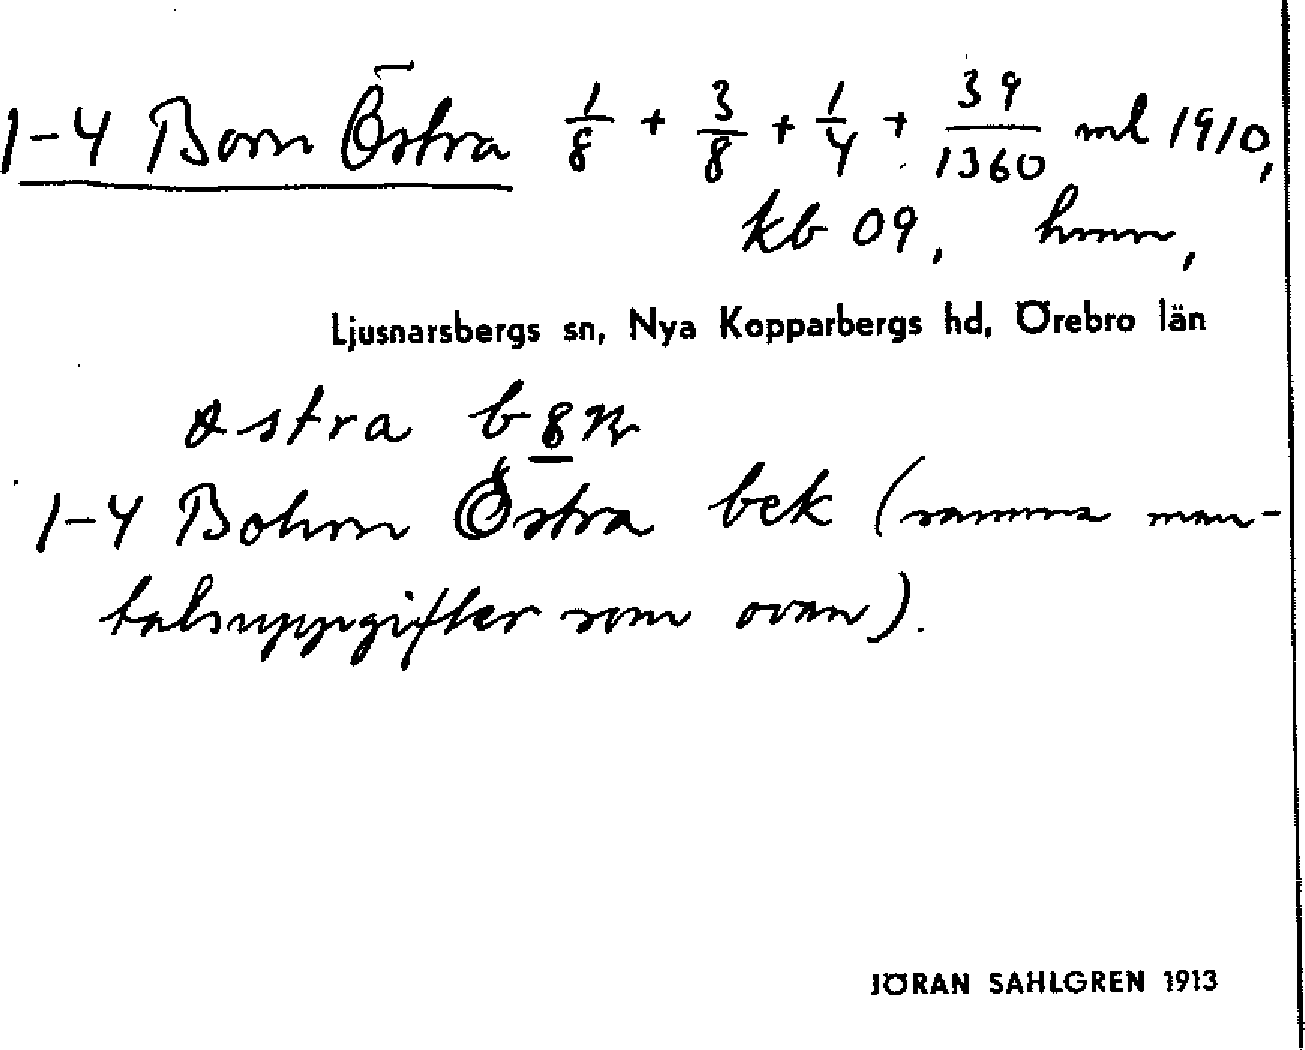 1-4 Born Östra 1/8 + 3/8 + 1/4 + 39/1360 mtl 1910,
kb 09, hmn,
Ljusnarsbergs sn, Nya Kopparbergs hd, Örebro län
östra
1-4 Bohrn Östra bek (samma man-
talsuppgifter som ovan).
JÖRAN SAHLGREN 1913